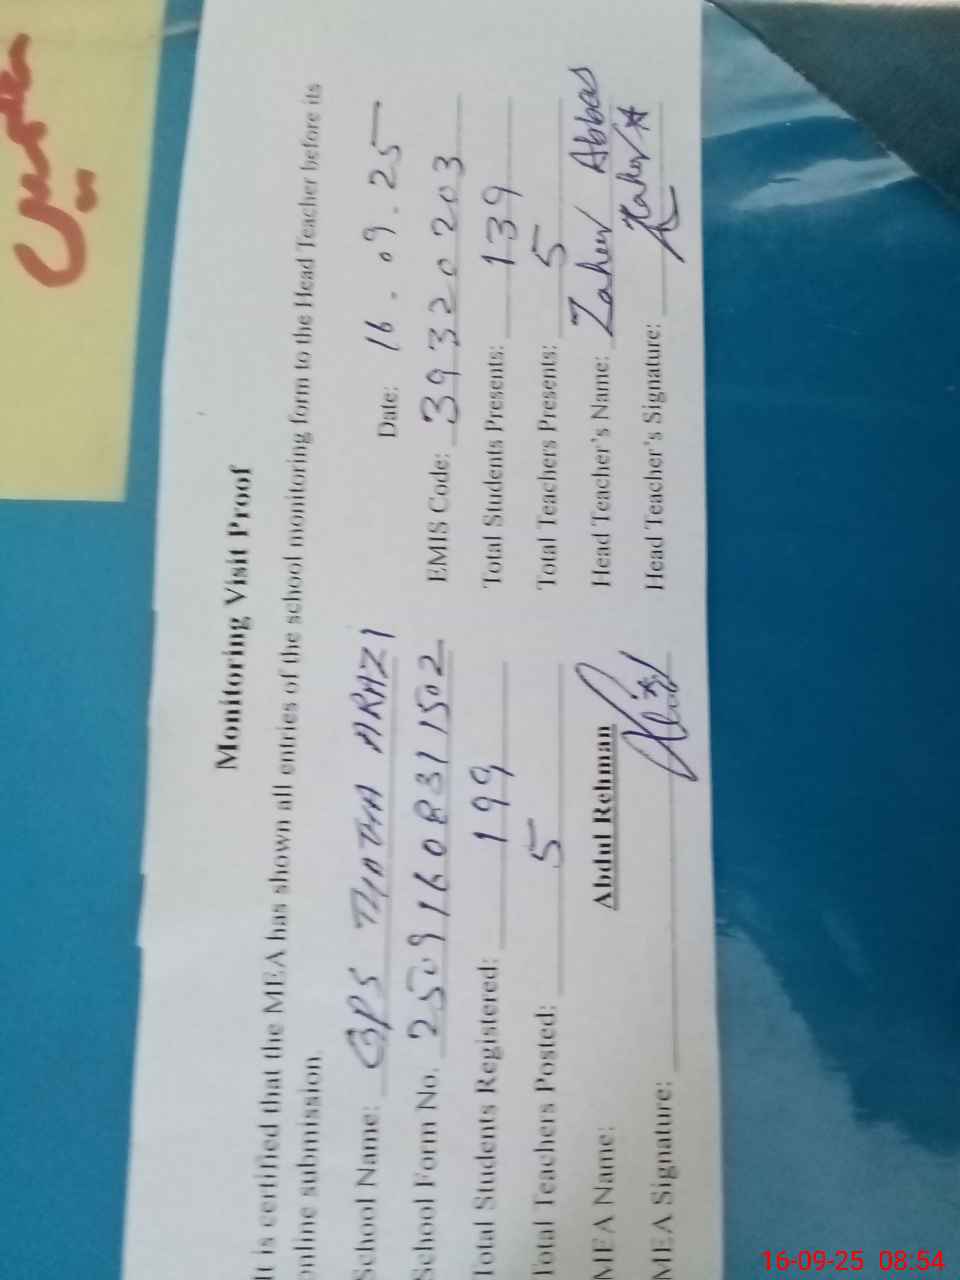 Monitoring Visit Proof
It is certified that the MEA has shown all entries of the school monitoring form to the Head Teacher before its
online submission.
School Name: GPS THATHA ARAZI Date: 16.09.25
School Form No. 2509160831502 EMIS Code: 39320203
Total Students Registered: 199 Total Students Presents: 139
Total Teachers Posted: 5 Total Teachers Presents: 5
MEA Name: Abdul Rehman Head Teacher's Name: Zaheer Abbas
MEA Signature: Head Teacher's Signature:
16-09-25 08:54